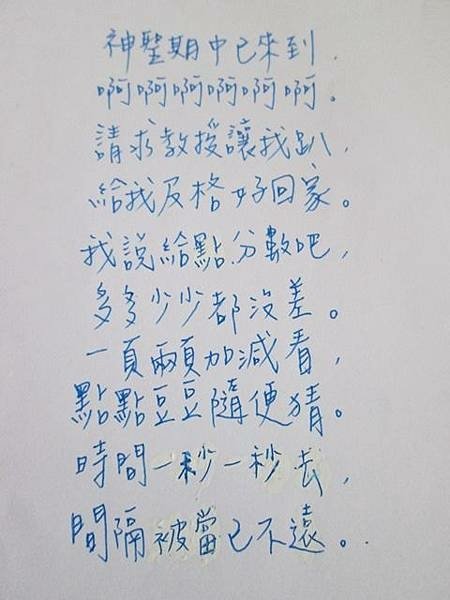 神聖期中已來到，
啊啊啊啊啊啊。
請求教授讓我趴，
給我及格好回家。
我說給點分數吧，
多多少少都沒差。
一頁兩頁加減看，
點點豆豆隨便猜。
時間一秒一秒去，
間隔被當已不遠。